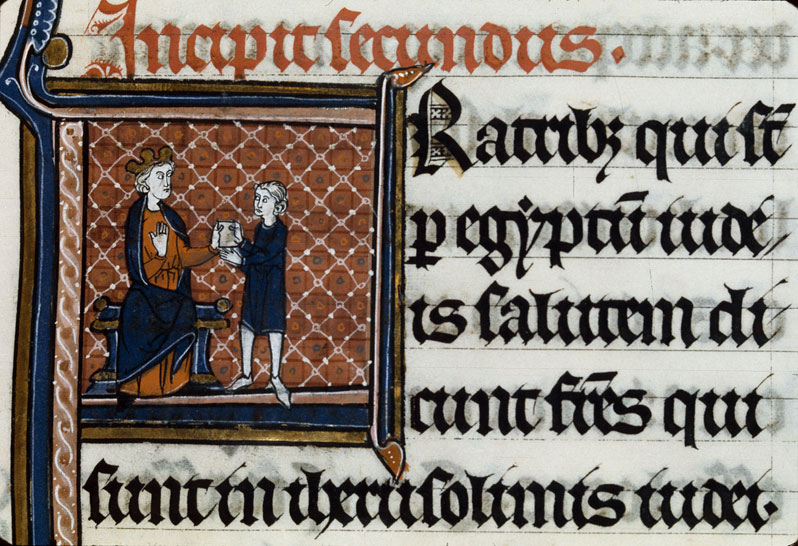 Incipit secundus.
Ratribꝫ qui sūt
ꝑ egyptū iude
is salutem di
cunt fr̄es qui
sunt in iherusolimis iudei.